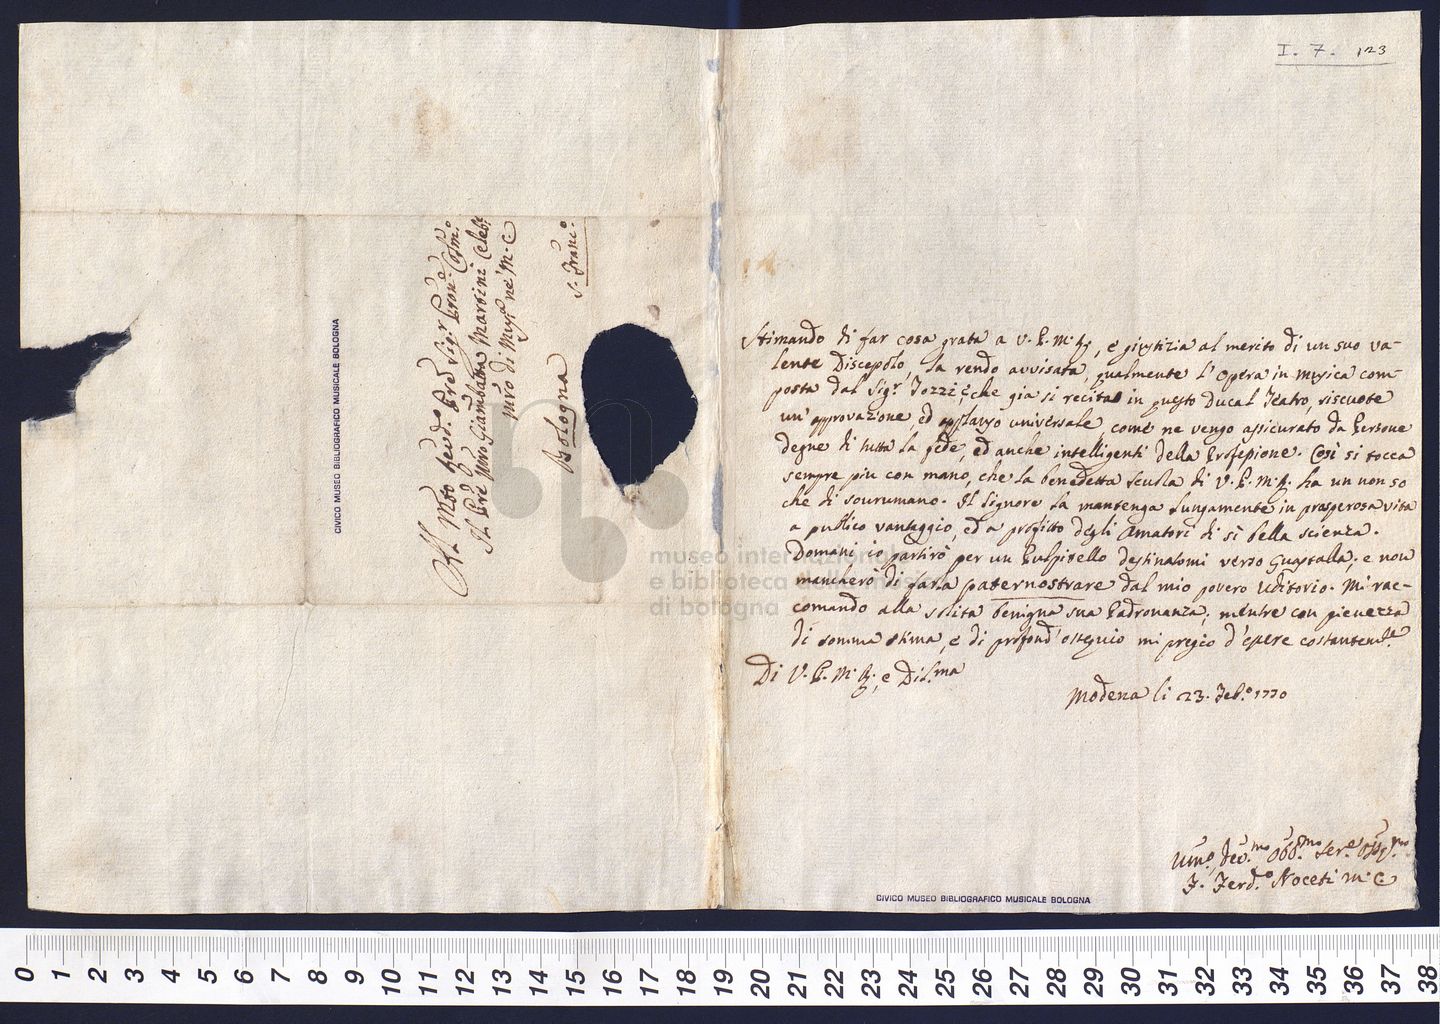 I. 7. 123
Al Mto Revdo Pre Sigr Prone Colmo
Il Pre Mro Giambatta Martini Celebe
Mro di Musica ne' M. C.
Bologna
S. Franco
CIVICO MUSEO BIBLIOGRAFICO MUSICALE BOLOGNA
Stimando di far cosa grata a V. P. M. R., e giustizia al merito di un suo va-
lente Discepolo, la rendo avvisata, qualmente l'Opera in Musica com-
posta dal Sigr Tozzi, che già si recita in questo Ducal Teatro, riscuote
un'approvazione, ed applauso universale, come ne vengo assicurato da Persone
degne di tutta la fede, ed anche intelligenti della Professione. Così si tocca
sempre più con mano, che la benedetta scuola di V. P. M. R. ha un non so
che di sovrumano. Il Signore la mantenga lungamente in prosperosa vita
a publico vantaggio, ed a profitto degli Amatori di sì bella scienza.
Domani io partirò per un Pulpitello destinatomi verso Guastalla; e non
mancherò di farla paternostrare dal mio povero Uditorio. Mi rac-
comando alla solita benigna sua Padronanza; mentre con pienezza
di somma stima, e di profond'ossequio mi pregio d'essere costantemte
Di V. P. M. R., e Dil.ma
Modena li 23. Febo 1770
Umo, Devmo Obbmo Sere Ossqmo
F. Ferdo Noceti M. C.
CIVICO MUSEO BIBLIOGRAFICO MUSICALE BOLOGNA
museo internazionale
e biblioteca della musica
di bologna
0 1 2 3 4 5 6 7 8 9 10 11 12 13 14 15 16 17 18 19 20 21 22 23 24 25 26 27 28 29 30 31 32 33 34 35 36 37 38